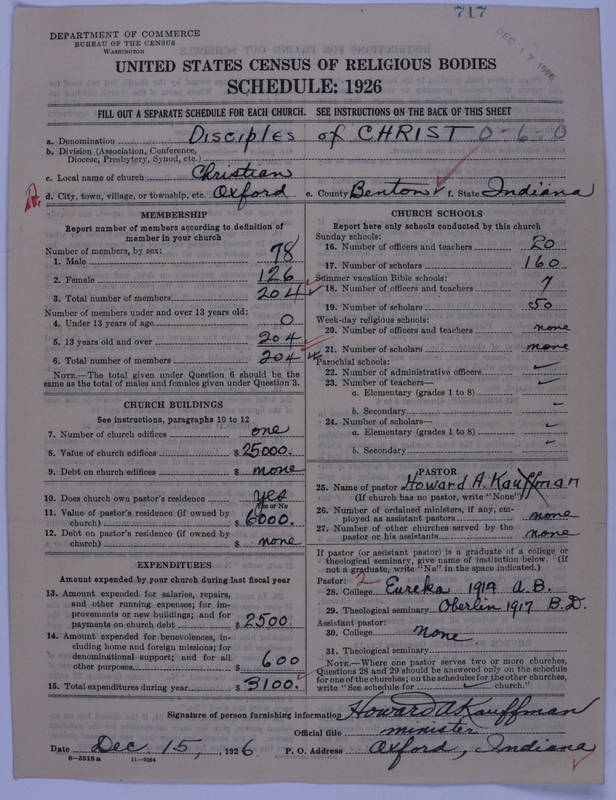 717
DEC 17 1926
DEPARTMENT OF COMMERCE
BUREAU OF THE CENSUS
WASHINGTON
UNITED STATES CENSUS OF RELIGIOUS BODIES
SCHEDULE: 1926
FILL OUT A SEPARATE SCHEDULE FOR EACH CHURCH. SEE INSTRUCTIONS ON THE BACK OF THIS SHEET
a. Denomination Disciples of CHRIST 0-6-0
b. Division (Association, Conference, Diocese, Presbytery, Synod, etc.)
c. Local name of church Christian
d. City, town, village, or township, etc. Oxford e. County Benton f. State Indiana
MEMBERSHIP
Report number of members according to definition of member in your church
Number of members, by sex:
1. Male 78
2. Female 126
3. Total number of members 204
Number of members under and over 13 years old:
4. Under 13 years of age 0
5. 13 years old and over 204
6. Total number of members 204
NOTE.—The total given under Question 6 should be the same as the total of males and females given under Question 3.
CHURCH BUILDINGS
See instructions, paragraphs 10 to 12
7. Number of church edifices one
8. Value of church edifices $ 25000.
9. Debt on church edifices $ none
10. Does church own pastor's residence yes
Yes or No
11. Value of pastor's residence (if owned by church) $ 6000.
12. Debt on pastor's residence (if owned by church) $ none
EXPENDITURES
Amount expended by your church during last fiscal year
13. Amount expended for salaries, repairs, and other running expenses; for improvements or new buildings; and for payments on church debt $ 2500.
14. Amount expended for benevolences, including home and foreign missions; for denominational support; and for all other purposes $ 600
15. Total expenditures during year $ 3100.
CHURCH SCHOOLS
Report here only schools conducted by this church
Sunday schools:
16. Number of officers and teachers 20
17. Number of scholars 160
Summer vacation Bible schools:
18. Number of officers and teachers 7
19. Number of scholars 50
Week-day religious schools:
20. Number of officers and teachers none
21. Number of scholars none
Parochial schools:
22. Number of administrative officers
23. Number of teachers—
a. Elementary (grades 1 to 8)
b. Secondary
24. Number of scholars—
a. Elementary (grades 1 to 8)
b. Secondary
PASTOR
25. Name of pastor Howard A. Kauffman
(If church has no pastor, write "None")
26. Number of ordained ministers, if any, employed as assistant pastors none
27. Number of other churches served by the pastor or his assistants none
If pastor (or assistant pastor) is a graduate of a college or theological seminary, give name of institution below. (If not a graduate, write "No" in the space indicated.)
Pastor: 2
28. College Eureka 1914 A.B.
29. Theological seminary Oberlin 1917 B.D.
Assistant pastor:
30. College None
31. Theological seminary
NOTE.—Where one pastor serves two or more churches, Questions 28 and 29 should be answered only on the schedule for one of the churches; on the schedules for the other churches, write "See schedule for church."
Signature of person furnishing information Howard A Kauffman
Official title minister
Date Dec 15, 1926 P. O. Address Oxford, Indiana
8—5518 a 11—9684